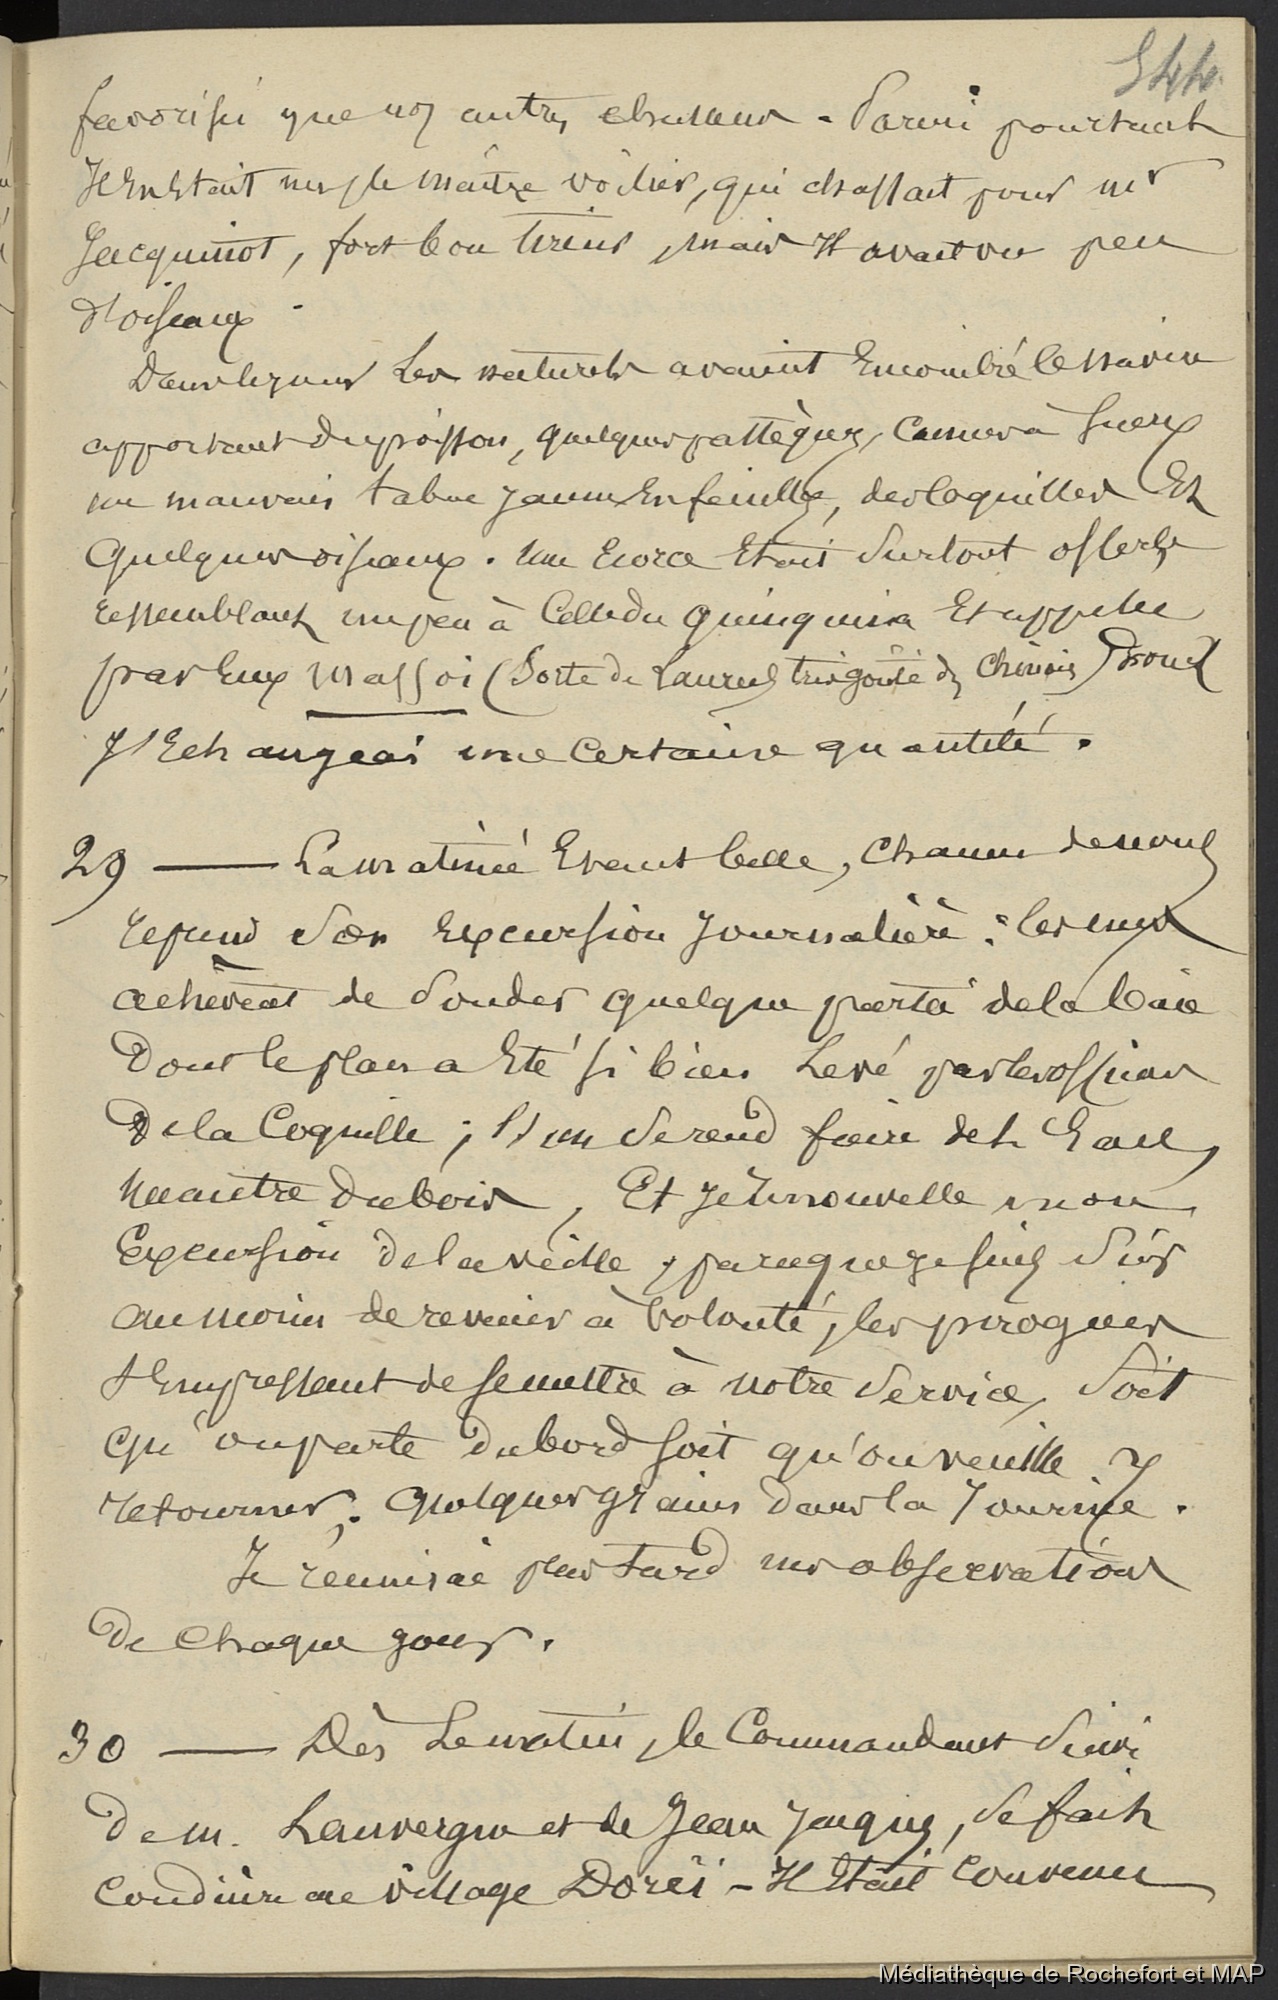 544
favorisés que nos autres chasseurs. Parmi pourtant
Il en était un, le maître voilier, qui chassait pour mr
Jacquinot, fort bon tireur, mais Il avait vu peu
d'oiseaux.
Les naturels avaient Encombré le navire
apportant du poisson, quelques pastèques, Cannes à Sucre
un mauvais tabac jaune En feuilles, des Coquilles Et
Quelques oiseaux. Une Ecorce Etait Surtout offerte
ressemblant un peu à Celle du quinquina Et appelée
par Eux Massoi (Sorte de Laurus très goûté des Chinois)
J'Echangeai une Certaine quantité.
29 — La matinée Etant belle, Chacun de nous
reprend Son Excursion Journalière : les uns
achèvent de Sonder quelque partie de la baie
Dont le plan a Eté si bien Levé par les officiers
De la Coquille ; l'un Se rend faire de l'Eau,
un autre du bois, Et je renouvelle mon
Excursion de la veille, parceque je suis Sûr
au moins de revenir à Volonté, les pirogues
s'Empressant de se mettre à notre Service, Soit
qu'on parte du bord soit qu'on veuille y
retourner. Quelques grains dans la Journée.
Je réunirai plus tard mes observations
De Chaque jour.
30 — Dès Le matin, le Commandant Suivi
De m. Lauvergne et de Jean Jacques, Se fait
Conduire au village Doréi — Il Etait Convenu
Médiathèque de Rochefort et MAP